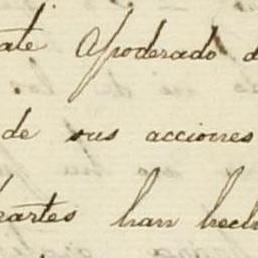 ate Apoderado d
de sus acciones
eartes han hech